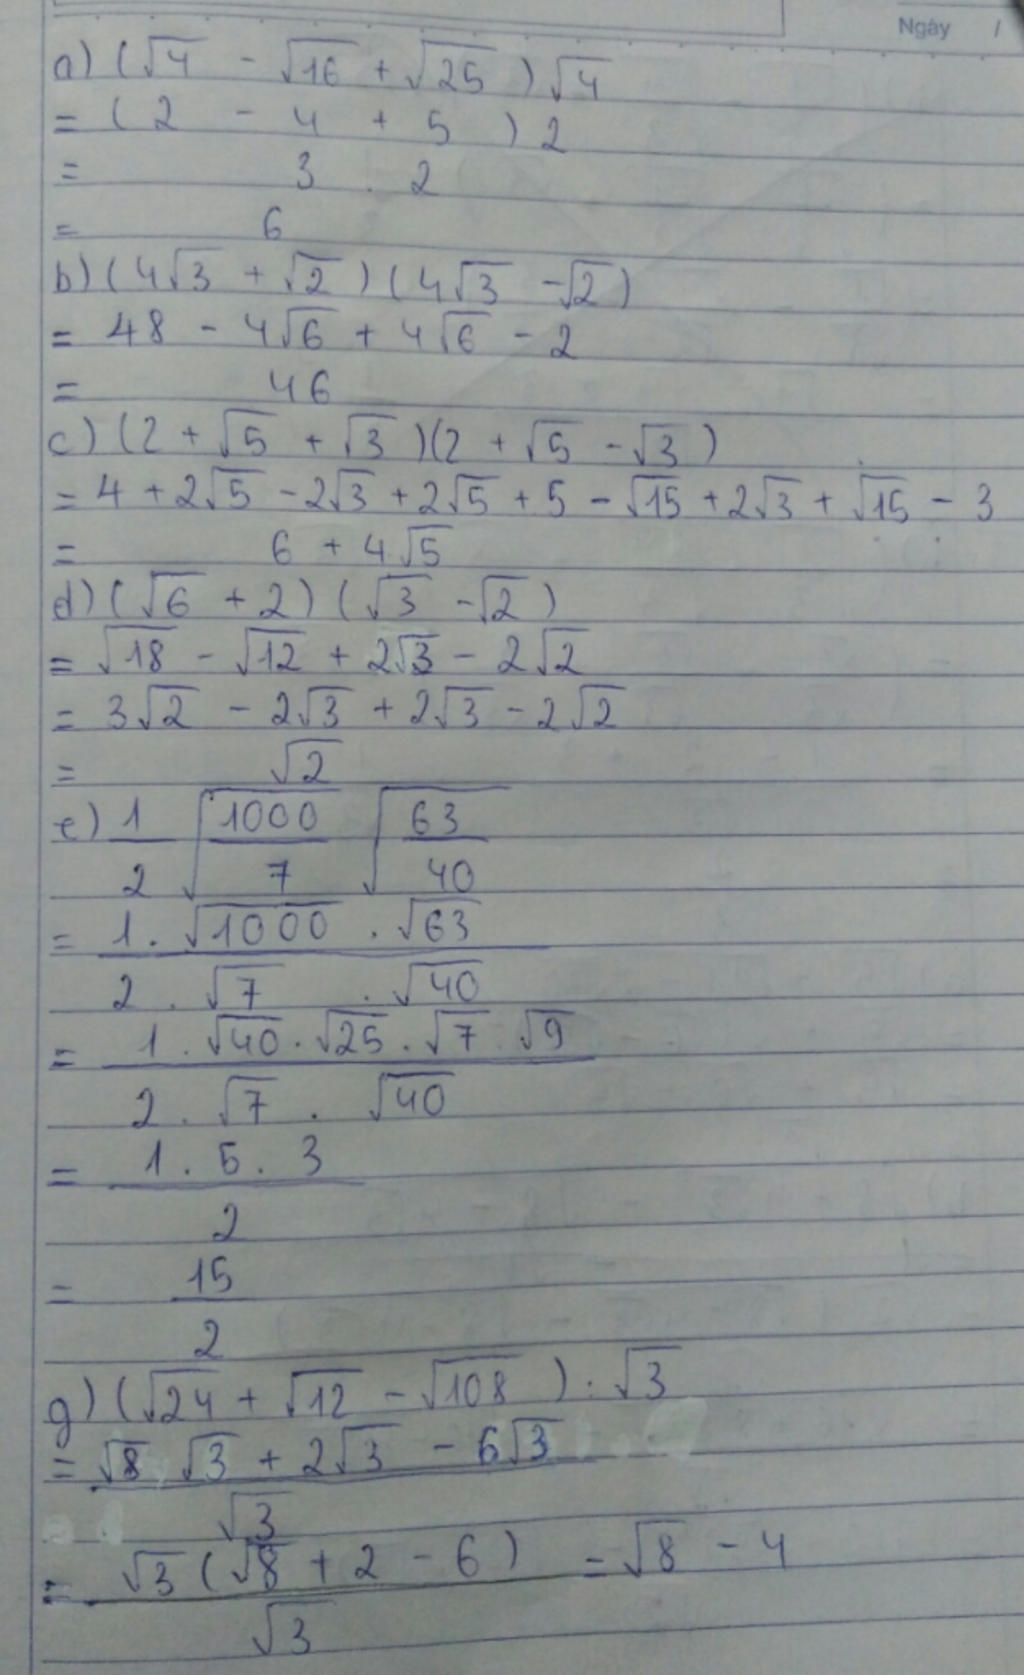 Ngày /
a) (√4 - √16 + √25) √4
= (2 - 4 + 5) 2
= 3 . 2
= 6
b) (4√3 + √2) (4√3 - √2)
= 48 - 4√6 + 4√6 - 2
= 46
c) (2 + √5 + √3)(2 + √5 - √3)
= 4 + 2√5 - 2√3 + 2√5 + 5 - √15 + 2√3 + √15 - 3
= 6 + 4√5
d) (√6 + 2) (√3 - √2)
= √18 - √12 + 2√3 - 2√2
= 3√2 - 2√3 + 2√3 - 2√2
= √2
e) 1/2 √(1000/7) √(63/40)
= (1 . √1000 . √63)/(2 . √7 . √40)
= (1 . √40 . √25 . √7 . √9)/(2 . √7 . √40)
= (1 . 5 . 3)/2
= 15/2
g) (√24 + √12 - √108) : √3
= (√8 . √3 + 2√3 - 6√3)/√3
= √3 (√8 + 2 - 6)/√3 = √8 - 4